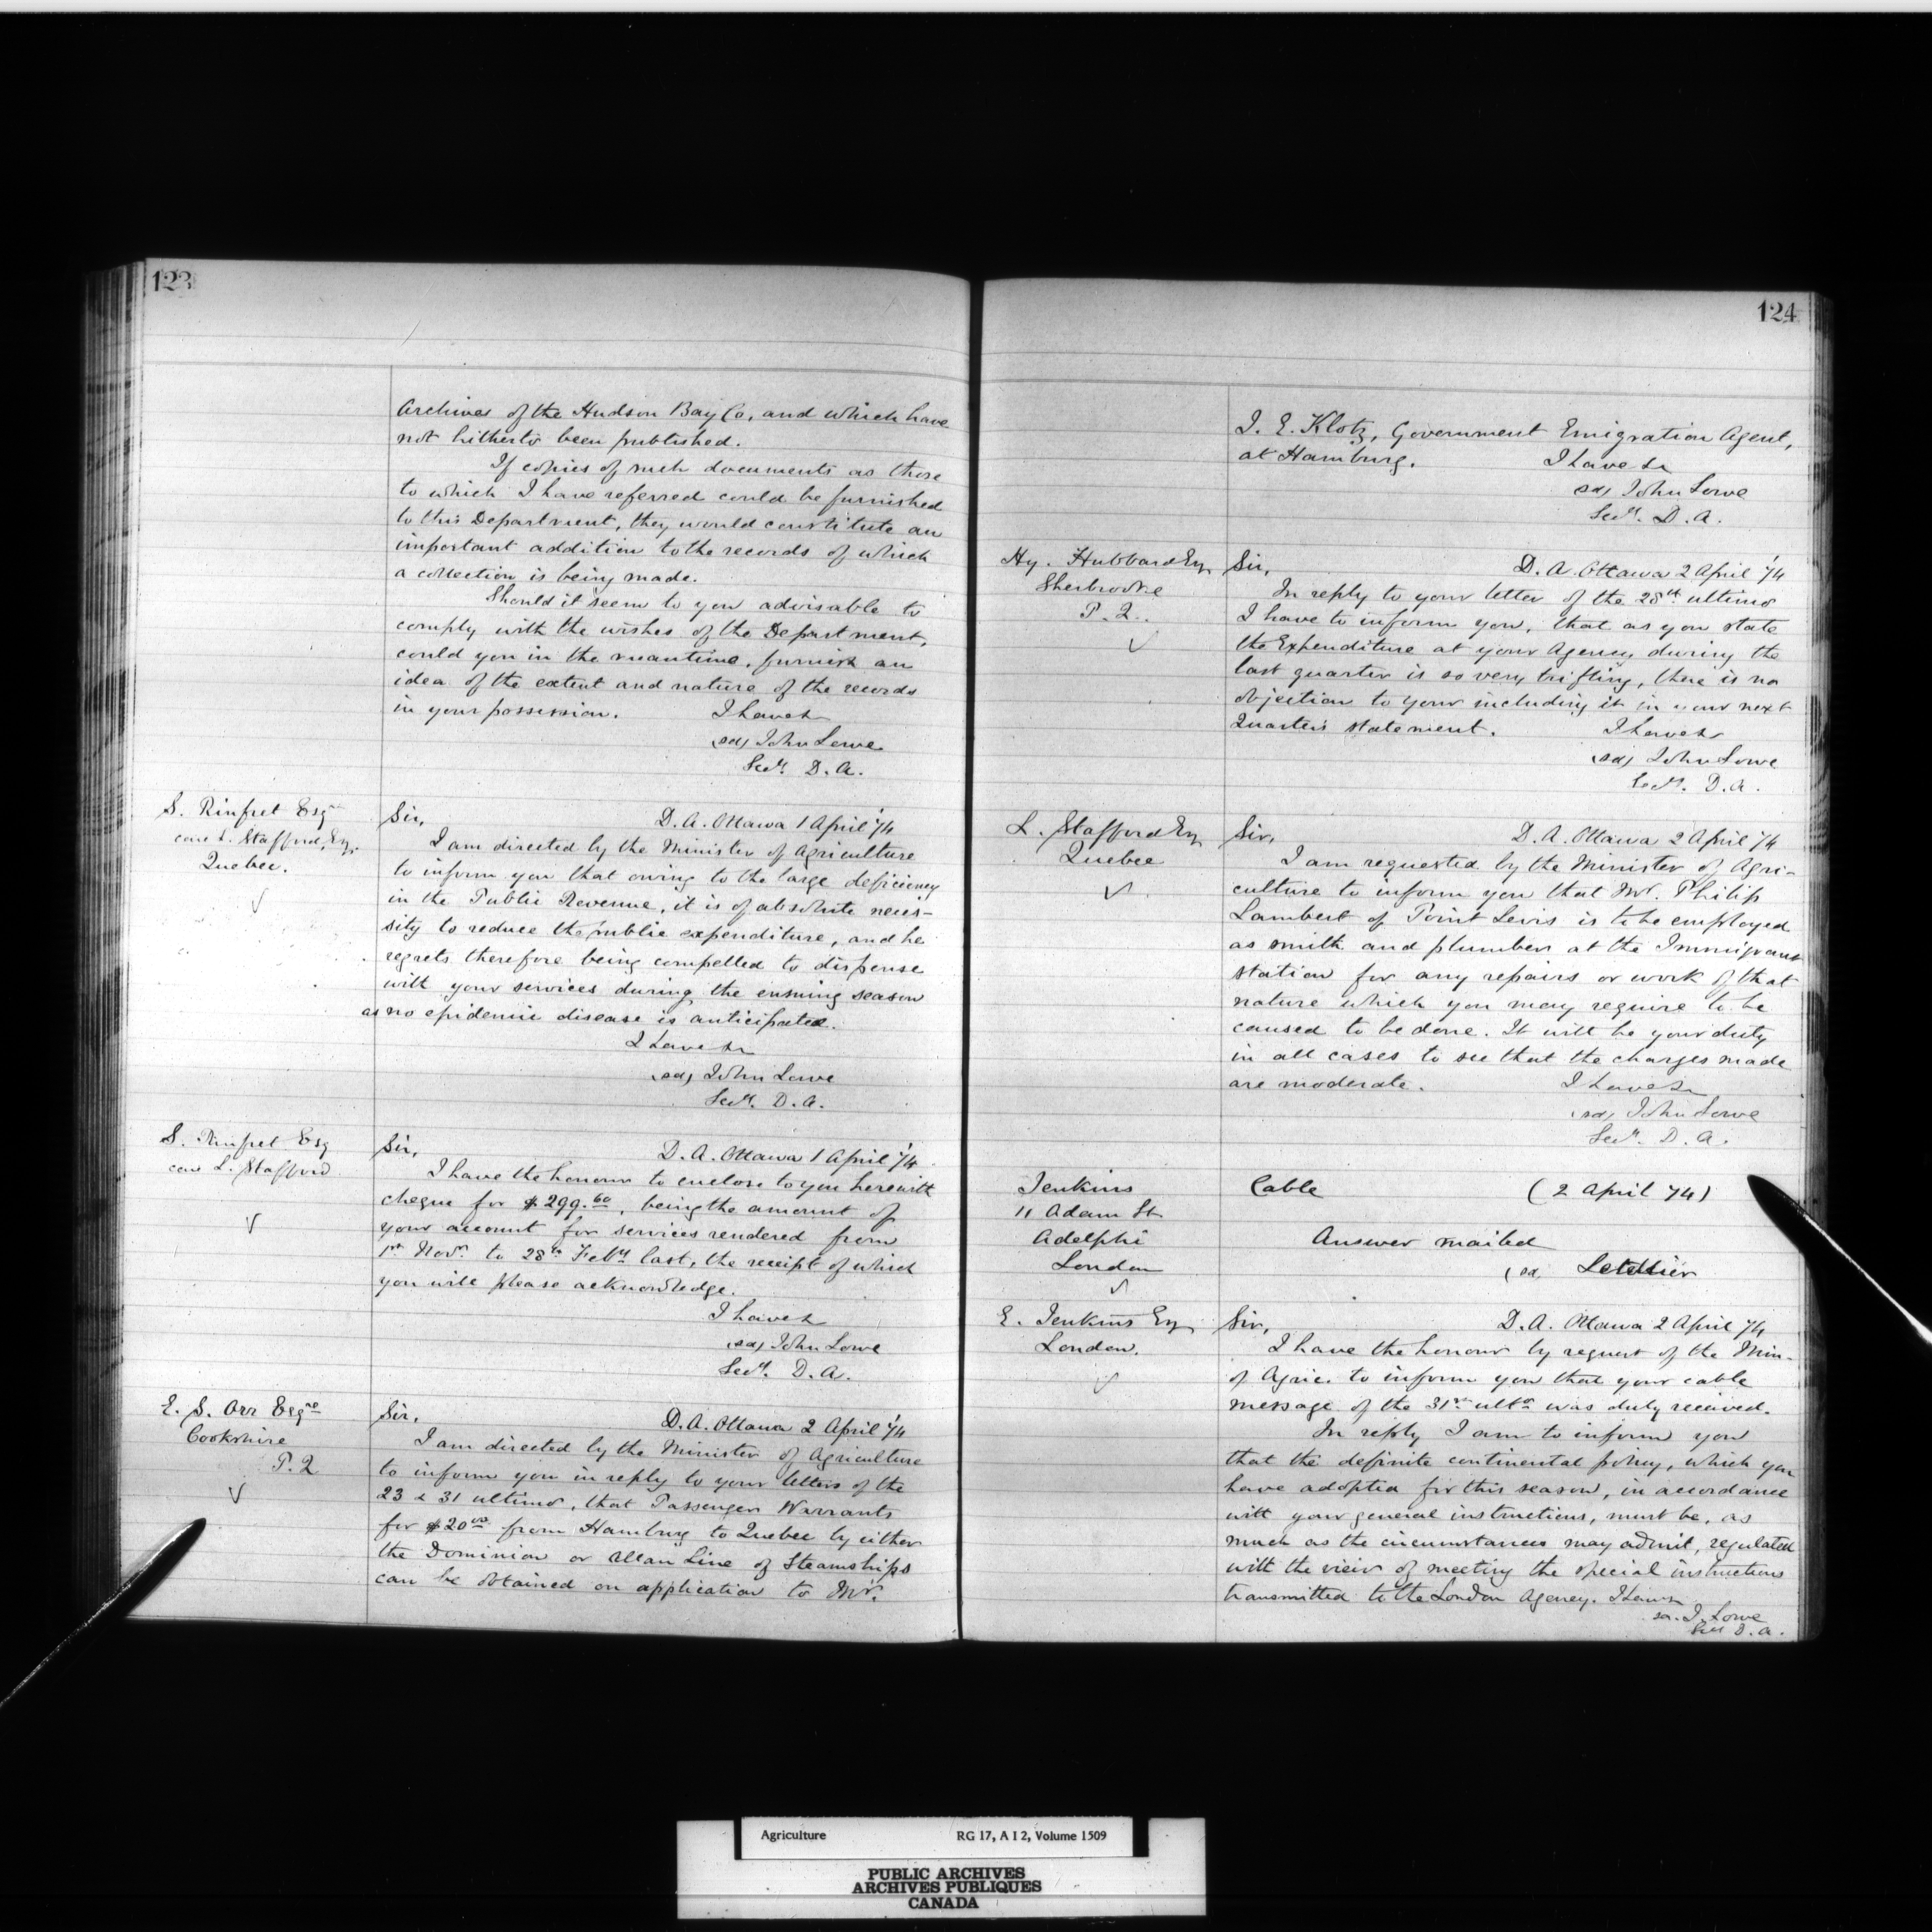 123
Archives of the Hudson Bay Co, and which have
not hitherto been published.
If copies of such documents as those
to which I have referred could be furnished
to this Department, they would constitute an
important addition to the records of which
a collection is being made.
Should it seem to you advisable to
comply with the wishes of the Department,
could you in the meantime, furnish an
idea of the extent and nature of the records
in your possession. I have &
(sd) John Lowe
Secy. D. A.
S. Rinfret Esqre
care L. Stafford, Esq.
Quebec.
Sir, D. A. Ottawa 1 April '74
I am directed by the Minister of Agriculture
to inform you that owing to the large deficiency
in the Public Revenue, it is of absolute neces-
sity to reduce the public expenditure, and he
regrets therefore being compelled to dispense
with your services during the ensuing season
as no epidemic disease is anticipated.
I have &
(sd) John Lowe
Secy. D. A.
S. Rinfret Esq
care L. Stafford
Sir, D. A. Ottawa 1 April '74
I have the honour to enclose to you herewith
cheque for $299.60, being the amount of
your account for services rendered from
1st Novr. to 28th Feby last, the receipt of which
you will please acknowledge.
I have &
(sd) John Lowe
Secy. D. A.
E. S. Orr Esqre
Cookshire
P. Q
Sir, D. A. Ottawa 2 April '74
I am directed by the Minister of Agriculture
to inform you in reply to your letters of the
23 & 31 ultimo, that Passenger Warrants
for $20.00 from Hamburg to Quebec by either
the Dominion or Allan Line of Steamships
can be obtained on application to Mr.
124
J. E. Klotz, Government Emigration Agent,
at Hamburg. I have &
(sd) John Lowe
Secy. D. A.
Hy. Hubbard Esq
Sherbrooke
P. Q..
Sir, D. A. Ottawa 2 April '74
In reply to your letter of the 28th ultimo
I have to inform you, that as you state
the Expenditure at your Agency during the
last quarter is so very trifling, there is no
objection to your including it in your next
Quarter's statement. I have &
(sd) John Lowe
Secy. D. A.
L. Stafford Esq
Quebec
Sir, D. A. Ottawa 2 April '74
I am requested by the Minister of Agri-
culture to inform you that Mr. Philip
Lambert of Point Levis is to be employed
as smith and plumber at the Immigrant
station for any repairs or work of that
nature which you may require to be
caused to be done. It will be your duty
in all cases to see that the charges made
are moderate. I have &
(sd) John Lowe
Secy. D. A.
Jenkins
11 Adam St
Adelphi
London
Cable (2 April 74)
Answer mailed
(sd, Letellier
E. Jenkins Esq
London.
Sir, D. A. Ottawa 2 April '74
I have the honour by request of the Min-
of Agric. to inform you that your cable
message of the 31st ulto was duly received.
In reply I am to inform you
that the definite continental policy, which you
have adopted for this season, in accordance
with your general instructions, must be, as
much as the circumstances may admit, regulated
with the view of meeting the special instructions
transmitted to the London Agency. I have &
sd. J. Lowe
Secy D. A.
Agriculture RG 17, A I 2, Volume 1509
PUBLIC ARCHIVES
ARCHIVES PUBLIQUES
CANADA